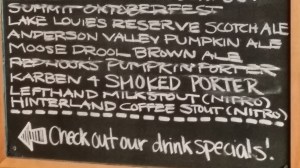 SUMMIT OKTOBERFEST
LAKE LOUIE'S RESERVE SCOTCH ALE
ANDERSON VALLEY PUMPKIN ALE
MOOSE DROOL BROWN ALE
REDHOOK'S PUMPKIN PORTER
KARBEN 4 SMOKED PORTER
LEFTHAND MILK STOUT (NITRO)
HINTERLAND COFFEE STOUT (NITRO)
Check out our drink specials!